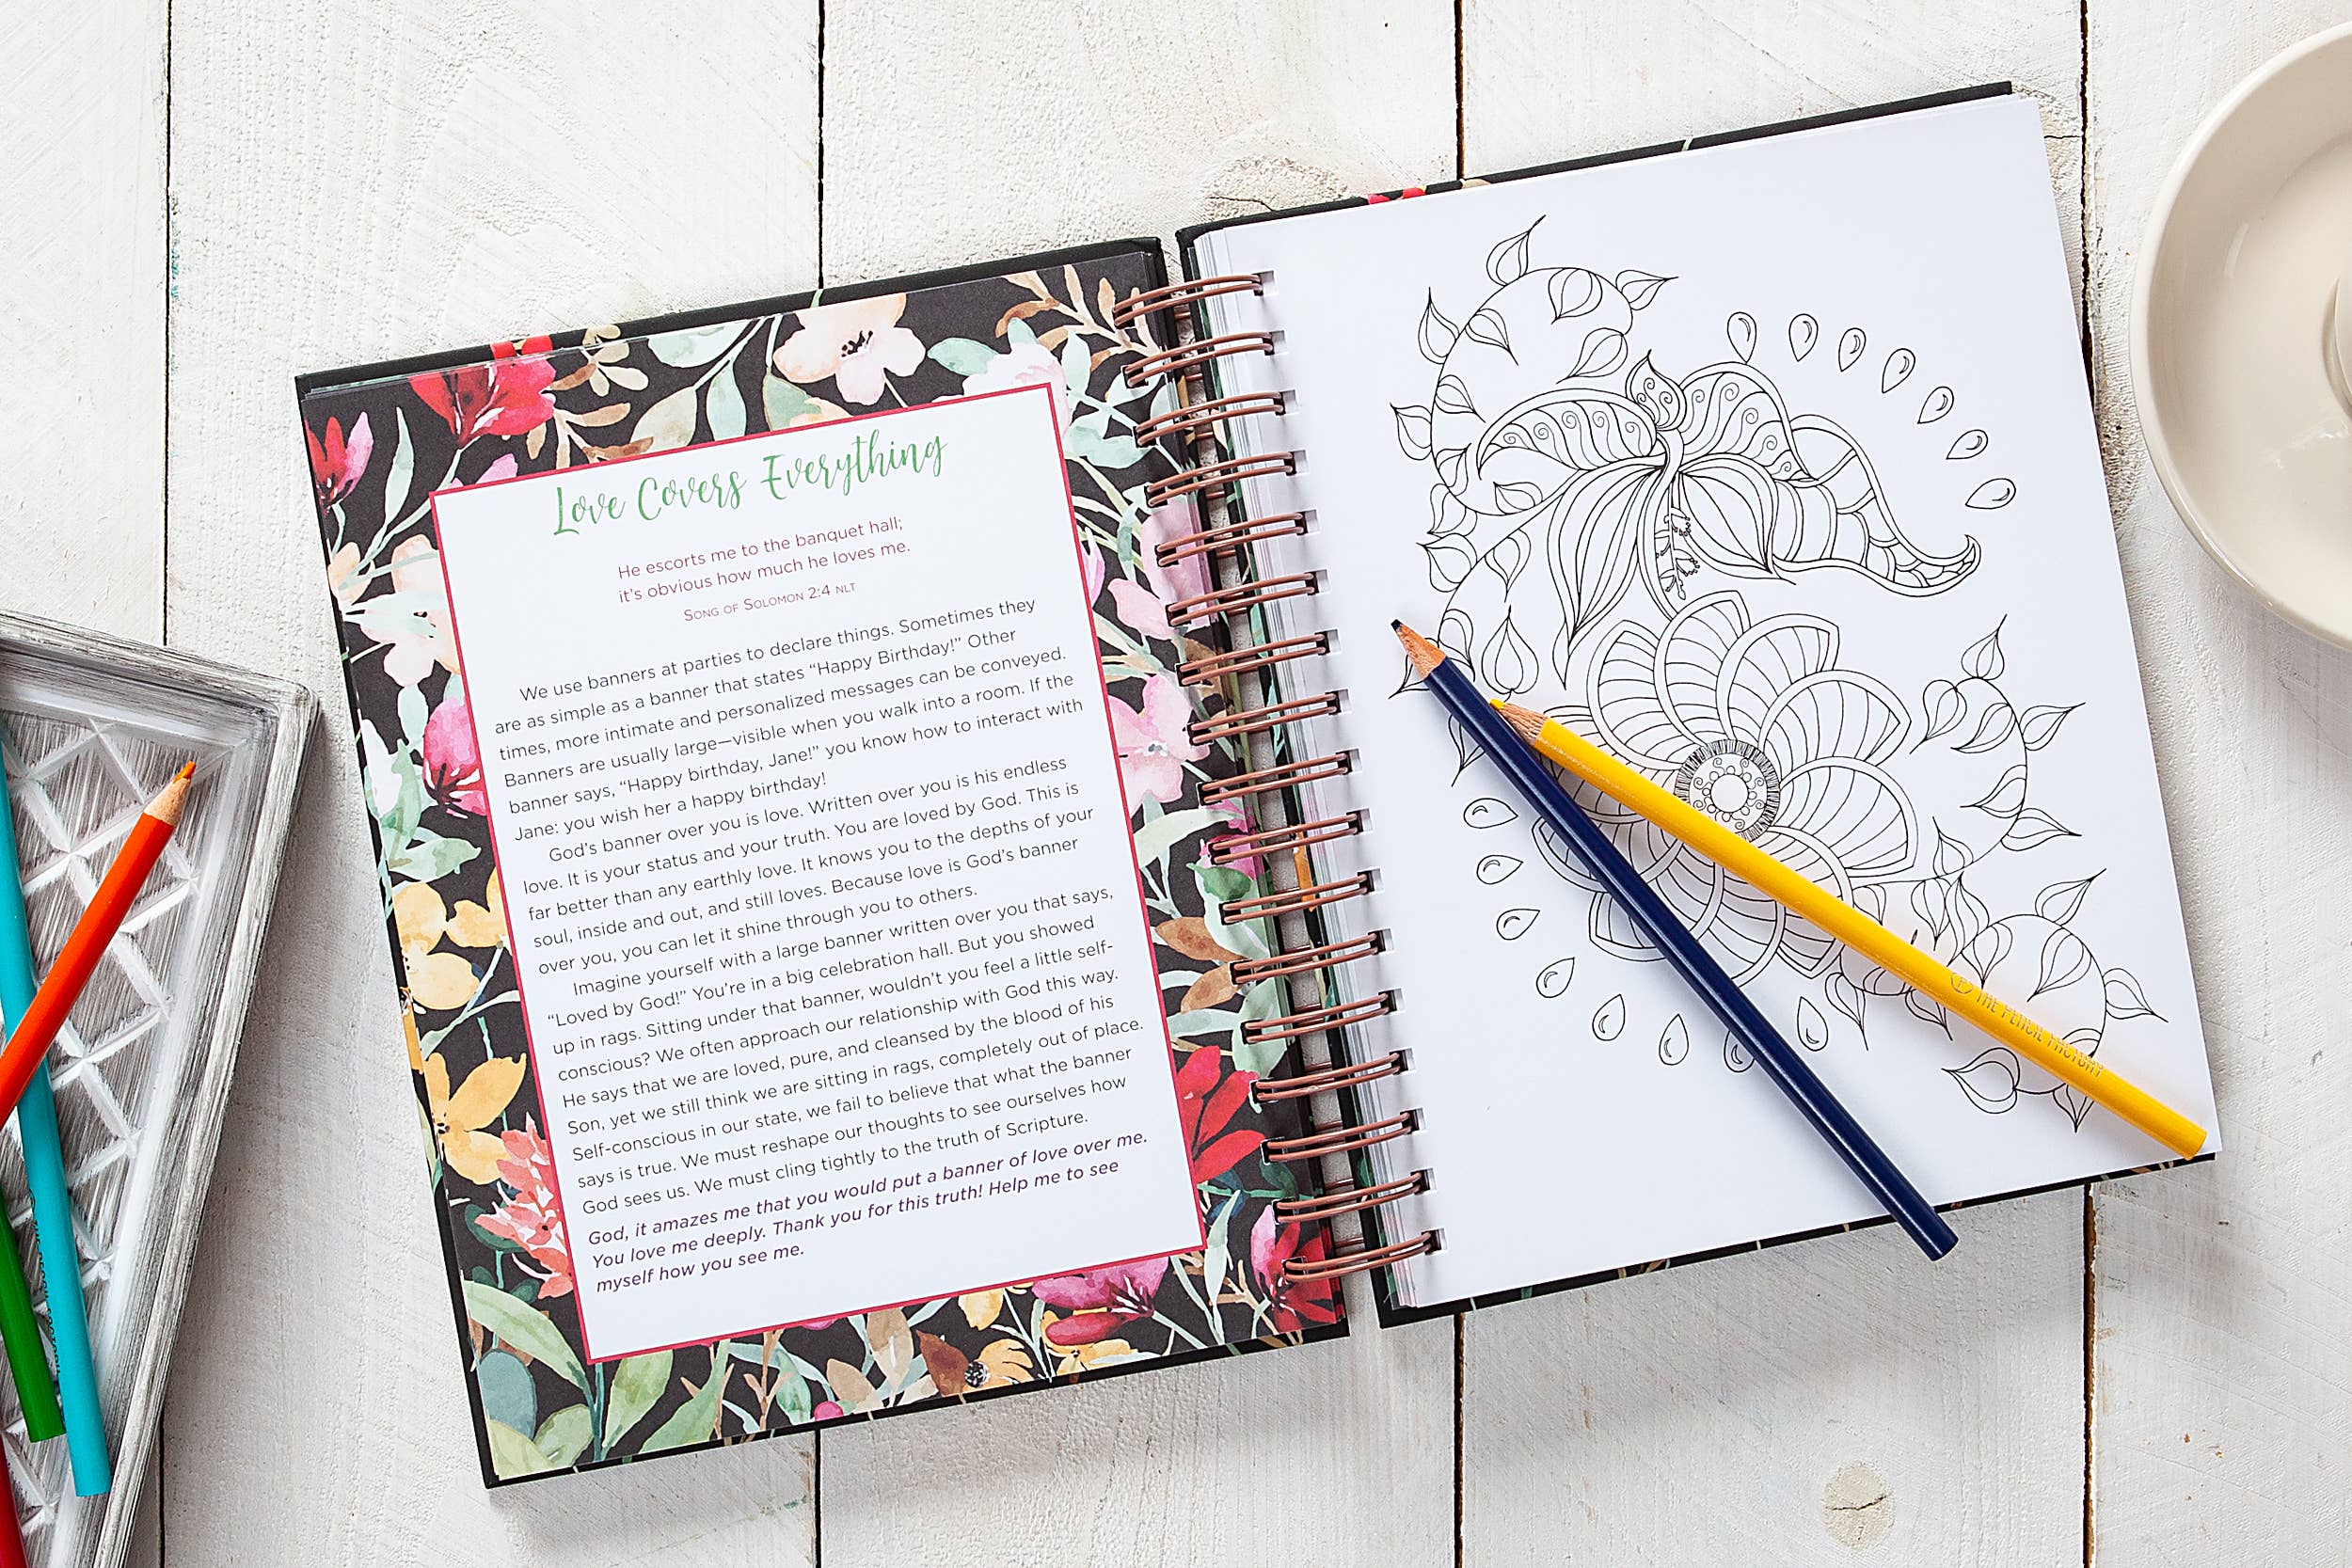 Love Covers Everything
He escorts me to the banquet hall;
it's obvious how much he loves me.
Song of Solomon 2:4 NLT
We use banners at parties to declare things. Sometimes they
are as simple as a banner that states “Happy Birthday!” Other
times, more intimate and personalized messages can be conveyed.
Banners are usually large—visible when you walk into a room. If the
banner says, “Happy birthday, Jane!” you know how to interact with
Jane: you wish her a happy birthday!
God's banner over you is love. Written over you is his endless
love. It is your status and your truth. You are loved by God. This is
far better than any earthly love. It knows you to the depths of your
soul, inside and out, and still loves. Because love is God's banner
over you, you can let it shine through you to others.
Imagine yourself with a large banner written over you that says,
“Loved by God!” You're in a big celebration hall. But you showed
up in rags. Sitting under that banner, wouldn't you feel a little self-
conscious? We often approach our relationship with God this way.
He says that we are loved, pure, and cleansed by the blood of his
Son, yet we still think we are sitting in rags, completely out of place.
Self-conscious in our state, we fail to believe that what the banner
says is true. We must reshape our thoughts to see ourselves how
God sees us. We must cling tightly to the truth of Scripture.
God, it amazes me that you would put a banner of love over me.
You love me deeply. Thank you for this truth! Help me to see
myself how you see me.
THE PENCIL FACTORY